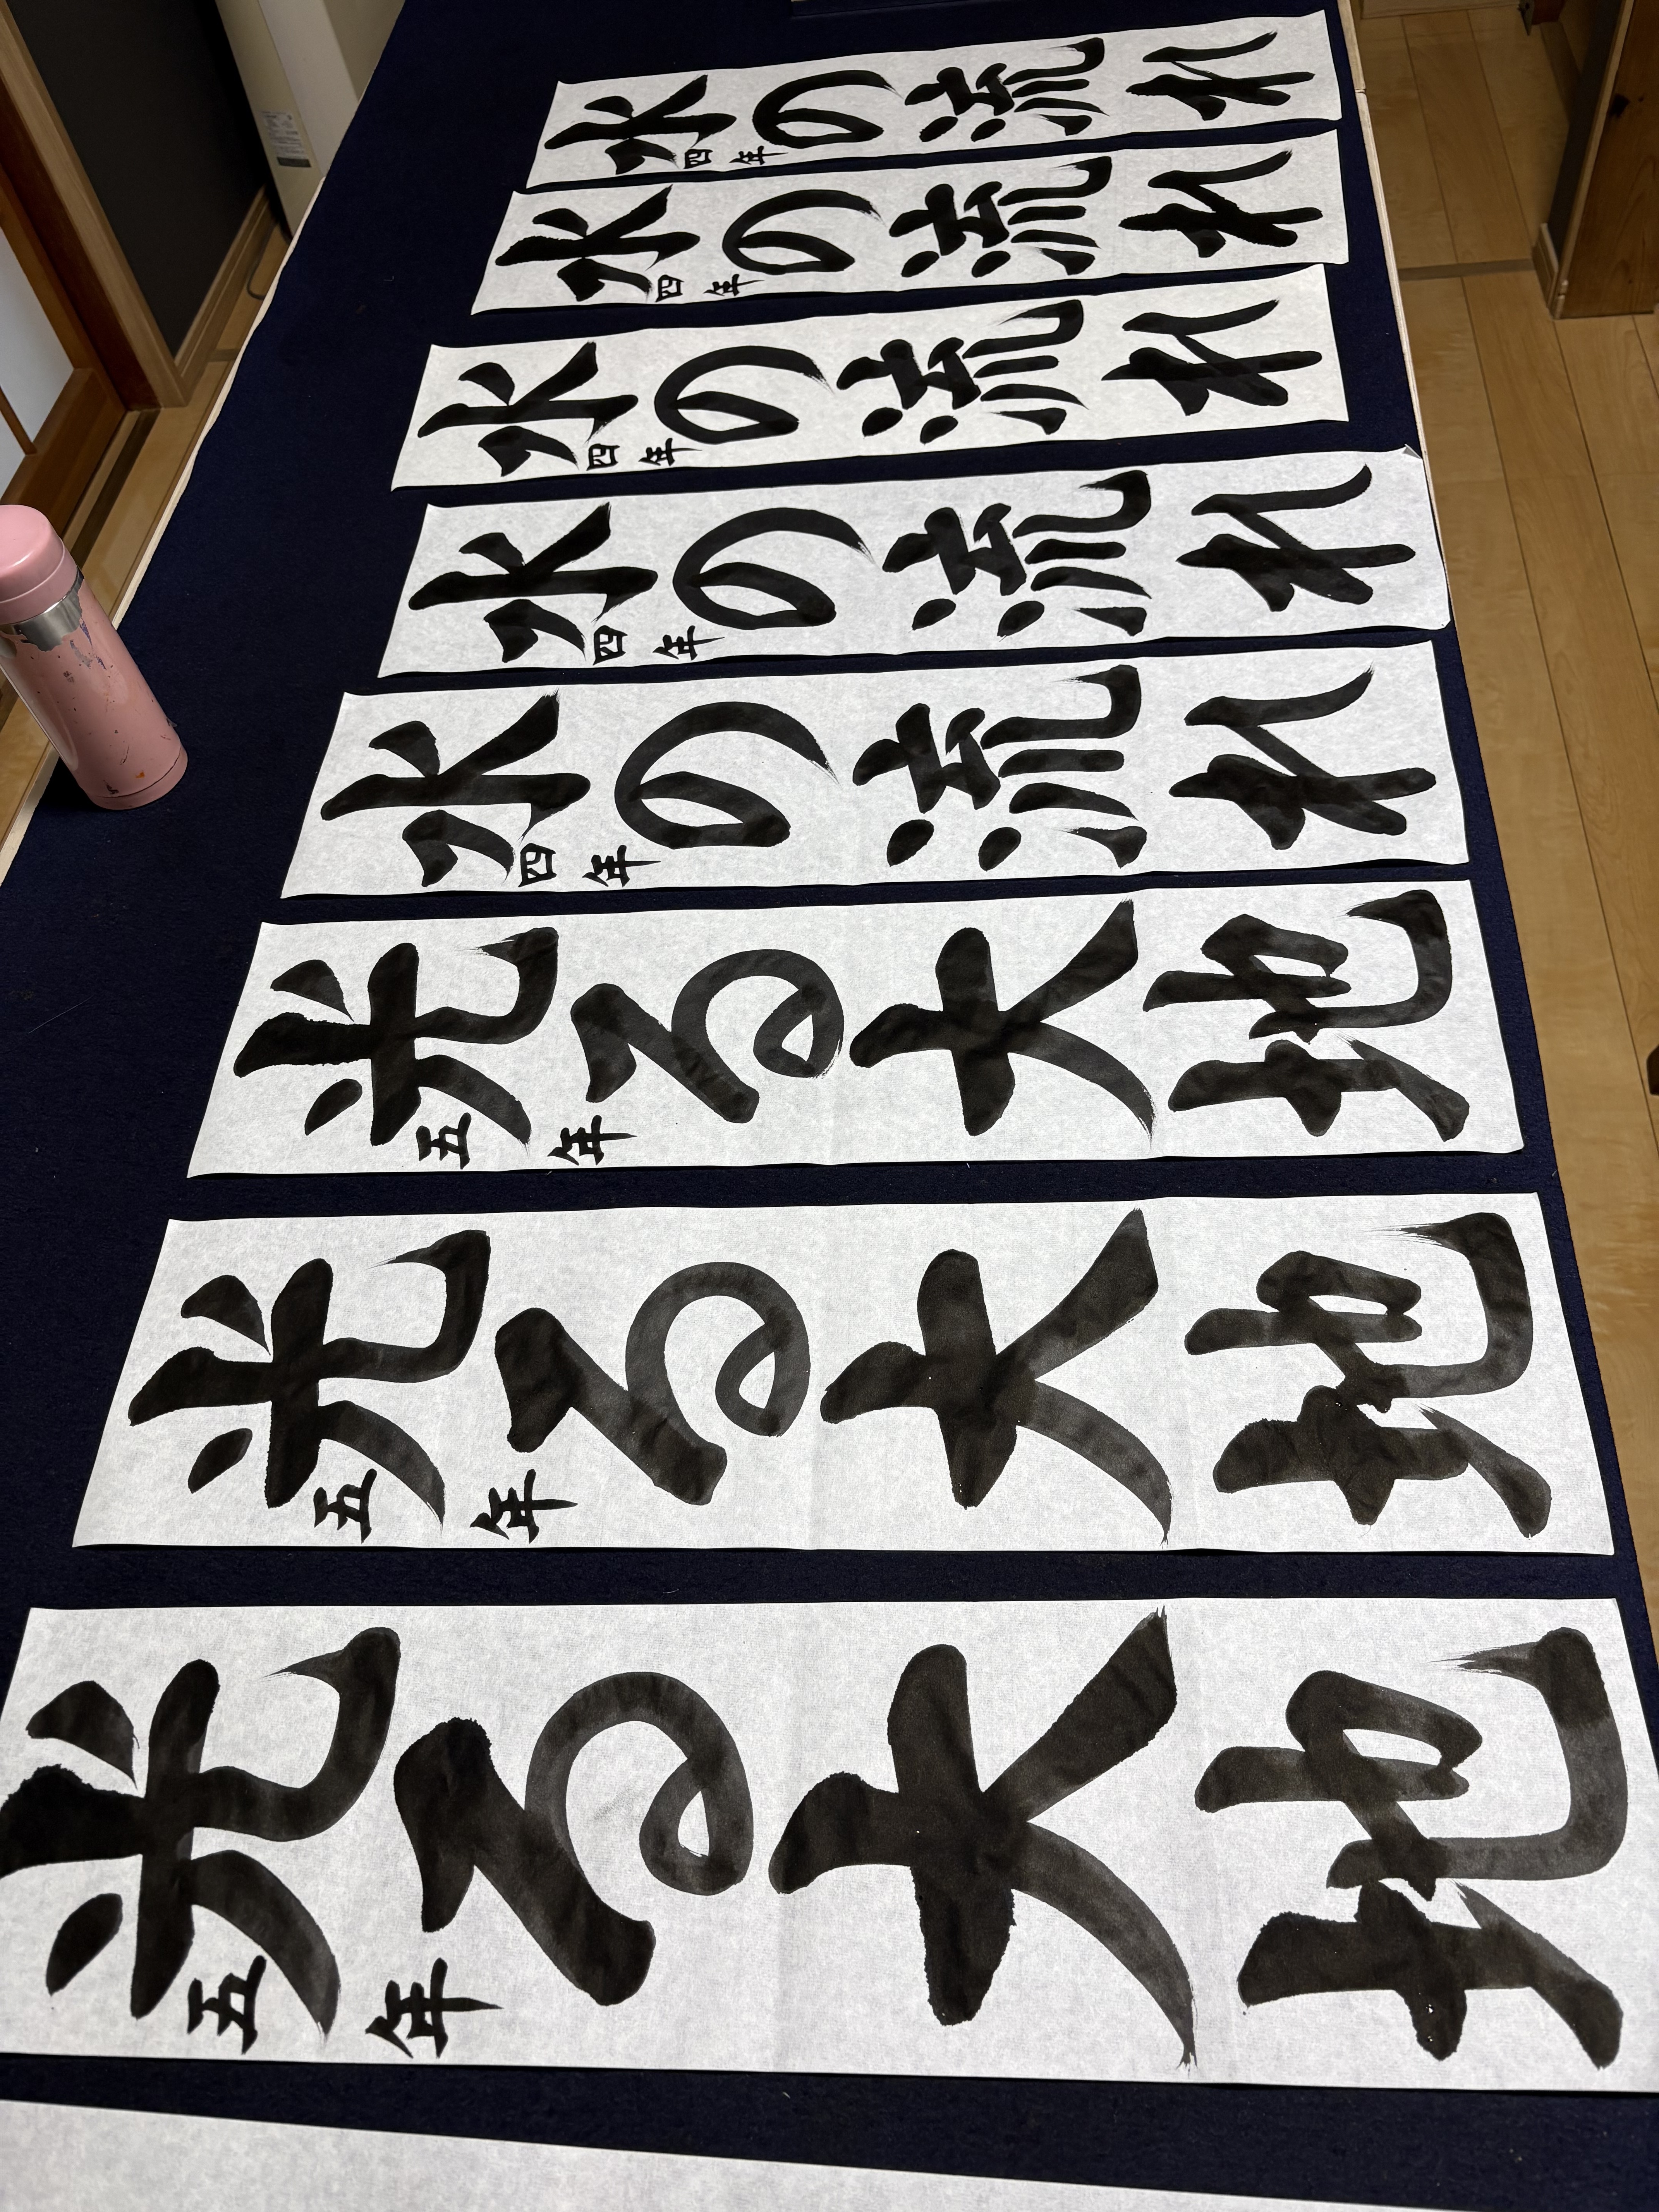 水の流れ
四年
水の流れ
四年
水の流れ
四年
水の流れ
四年
水の流れ
四年
光る大地
五年
光る大地
五年
光る大地
五年